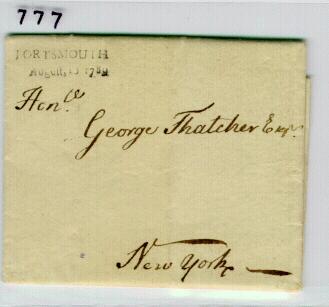 777
PORTSMOUTH
August, 13 1789
Honble
George Thatcher Esqr.
New York